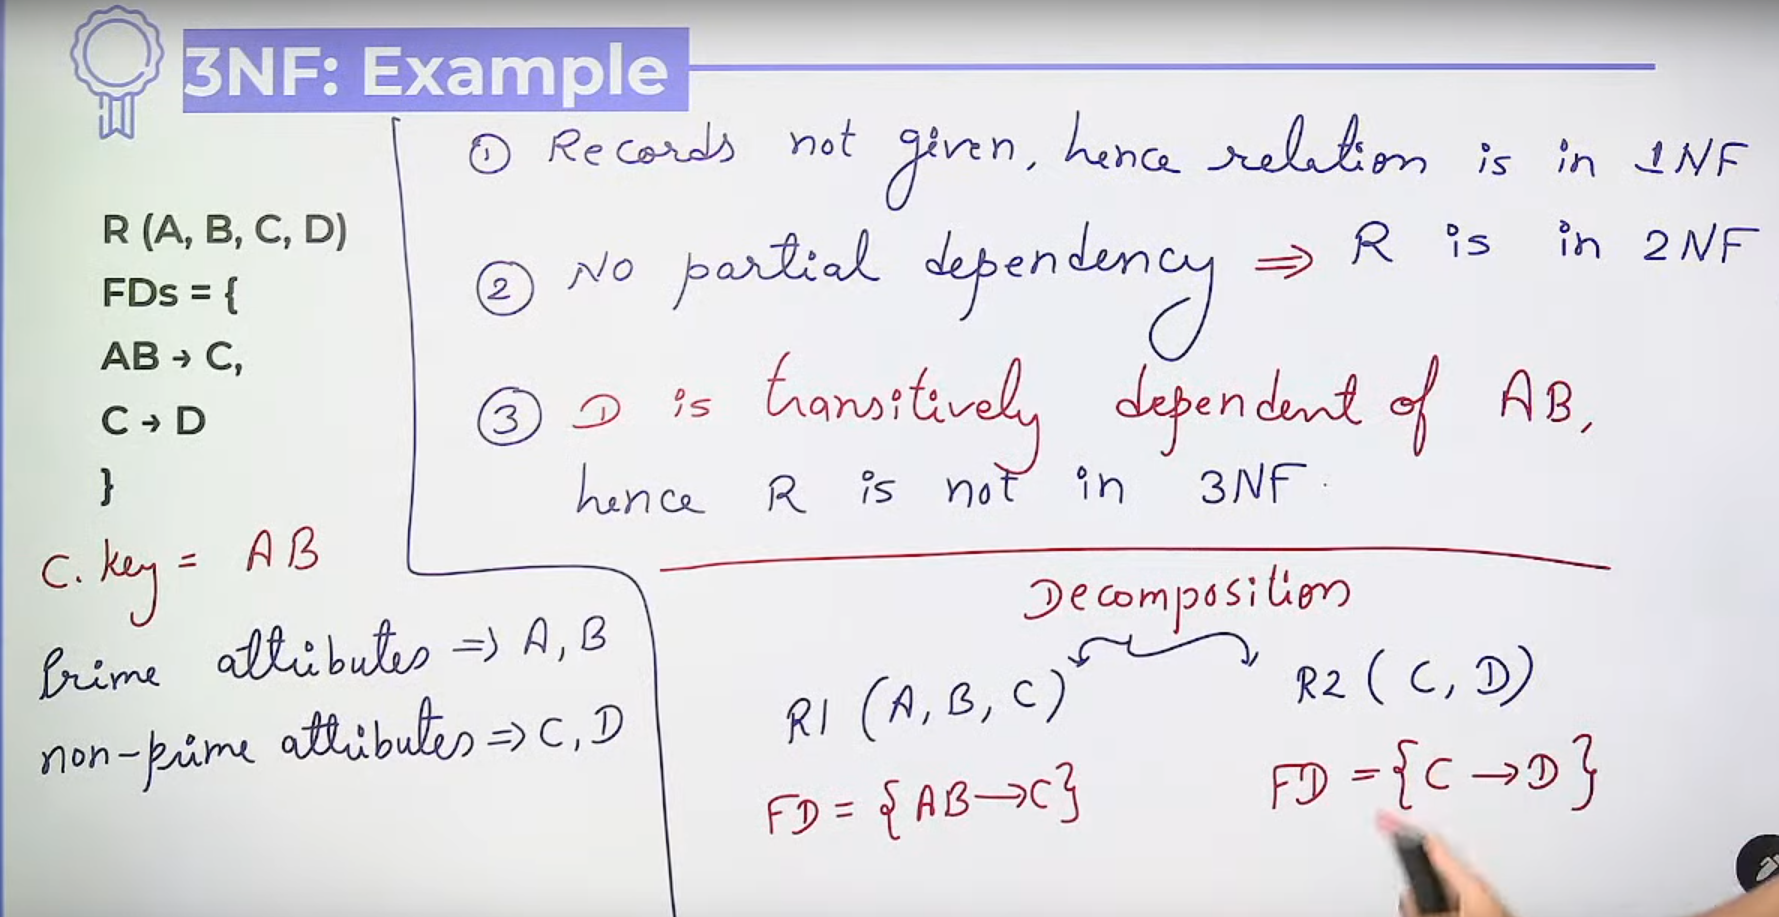 3NF: Example
R (A, B, C, D)
FDs = {
AB → C,
C → D
}
C. key = AB
Prime attributes ⇒ A, B
non-prime attributes ⇒ C, D
① Records not given, hence relation is in 1NF
② No partial dependency ⇒ R is in 2NF
③ D is transitively dependent of AB,
hence R is not in 3NF.
Decomposition
R1 (A, B, C)
FD = {AB → C}
R2 (C, D)
FD = {C → D}